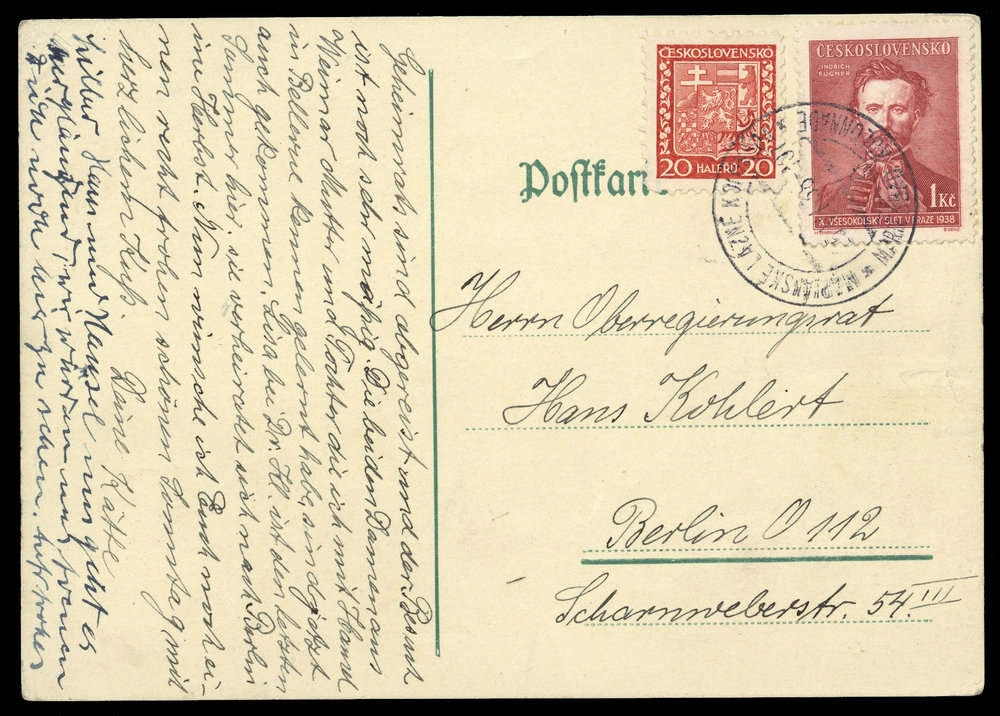 ČESKOSLOVENSKO
20 HALÉŘŮ 20
ČESKOSLOVENSKO
JINDŘICH
FÜGNER
1 Kč
X. VŠESOKOLSKÝ SLET V PRAZE 1938
Postkart
MARIÁNSKÉ LÁZNĚ KOLONÁDA
Herrn Oberregierungsrat
Hans Kohlert
Berlin O 112
Scharnweberstr. 54 III
Geheimrats sind abgereist und der Besuch
ist noch sehr mäßig. Die beiden Damen aus
Weimar Mutter und Tochter die ich mit Hansel
in Bellevue kennen gelernt habe, sind jetzt
auch gekommen. Lisa bei Dr. Kl. ist den letzten
Sommer hier, sie verheiratet sich nach Berlin
im Herbst. Nun wünsche ich Euch noch ei-
nen recht frohen schönen Sonntag mit
herzlichem Kuß Deine Käthe
Lieber Hans und Hansel mir geht es
wir würden uns freuen